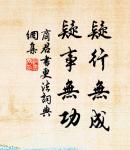 疑行無成
疑事無功
商君書更法詞典
網集